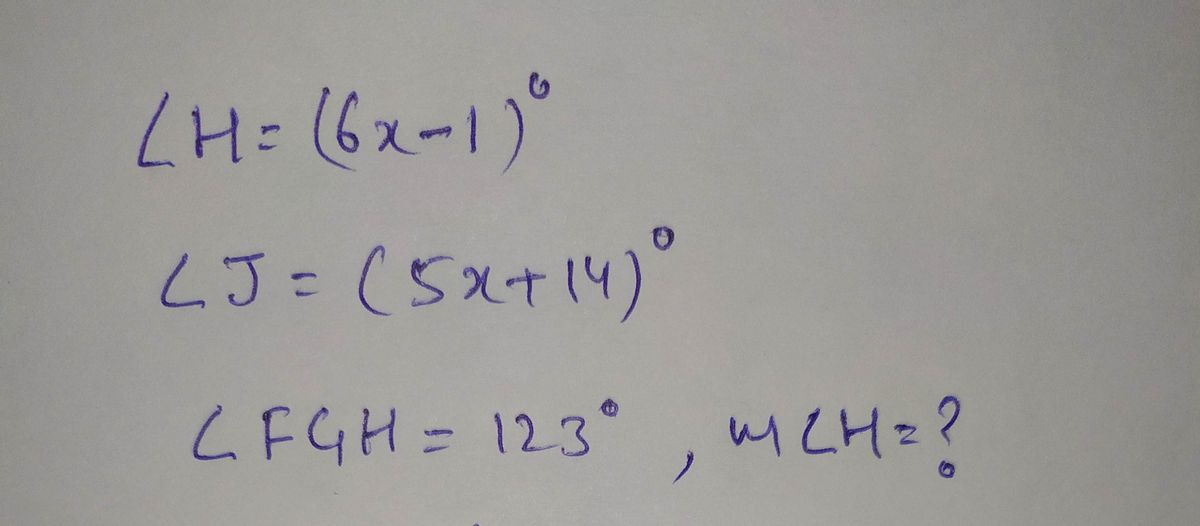 ∠H= (6x-1)°
∠J = (5x+14)°
∠FGH = 123° , m∠H=?